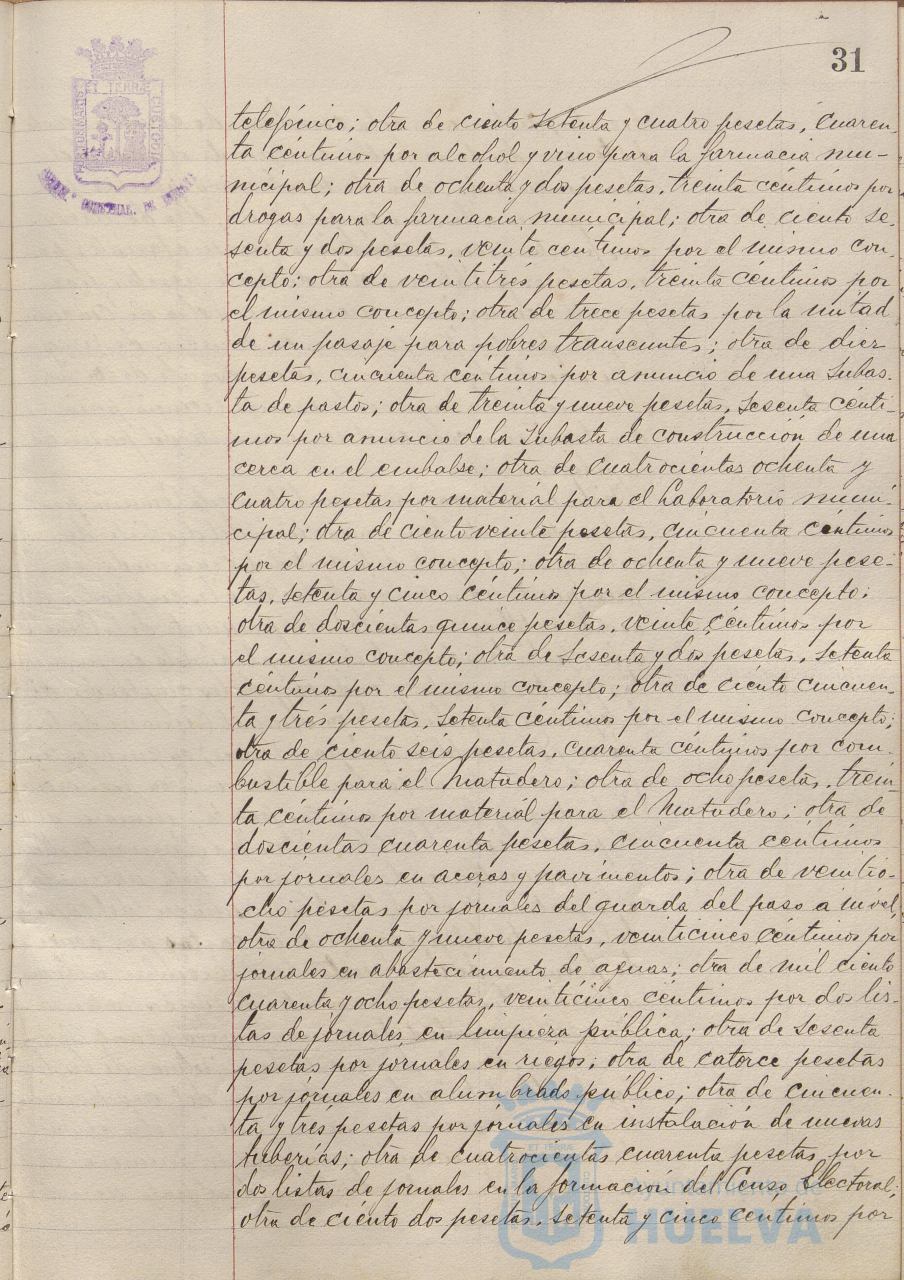 31
PORTUS MARIS ET TERRAE CUSTOD
telefónico; otra de ciento setenta y cuatro pesetas, cuaren-
ta céntimos por alcohol y vino para la farmacia mu-
nicipal; otra de ochenta y dos pesetas, treinta céntimos por
drogas para la farmacia municipal; otra de ciento se-
senta y dos pesetas, veinte céntimos por el mismo con-
cepto; otra de veintitrés pesetas, treinta céntimos por
el mismo concepto; otra de trece pesetas por la mitad
de un pasaje para pobres transeuntes; otra de diez
pesetas, cincuenta céntimos por anuncio de una subas-
ta de pastos; otra de treinta y nueve pesetas, sesenta cénti-
mos por anuncio de la subasta de construcción de una
cerca en el embalse; otra de cuatrocientas ochenta y
cuatro pesetas por material para el Laboratorio muni-
cipal; otra de ciento veinte pesetas, cincuenta céntimos
por el mismo concepto; otra de ochenta y nueve pese-
tas, setenta y cinco céntimos por el mismo concepto;
otra de doscientas quince pesetas, veinte céntimos por
el mismo concepto; otra de sesenta y dos pesetas, setenta
céntimos por el mismo concepto; otra de ciento cincuen-
ta y trés pesetas, setenta céntimos por el mismo concepto;
otra de ciento seis pesetas, cuarenta céntimos por com-
bustible para el Matadero; otra de ocho pesetas, trein-
ta céntimos por material para el Matadero; otra de
doscientas cuarenta pesetas, cincuenta céntimos
por jornales en aceras y pavimentos; otra de veintio-
cho pesetas por jornales del guarda del paso a nivel,
otra de ochenta y nueve pesetas, veinticinco céntimos por
jornales en abastecimiento de aguas; otra de mil ciento
cuarenta y ocho pesetas, veinticinco céntimos por dos lis-
tas de jornales en limpieza pública; otra de sesenta
pesetas por jornales en riegos; otra de catorce pesetas
por jornales en alumbrado público; otra de cincuen-
ta y trés pesetas por jornales en instalación de nuevas
tuberias; otra de cuatrocientas cuarenta pesetas, por
dos listas de jornales en la formación del Censo Electoral;
otra de ciento dos pesetas, setenta y cinco centimos por
HUELVA